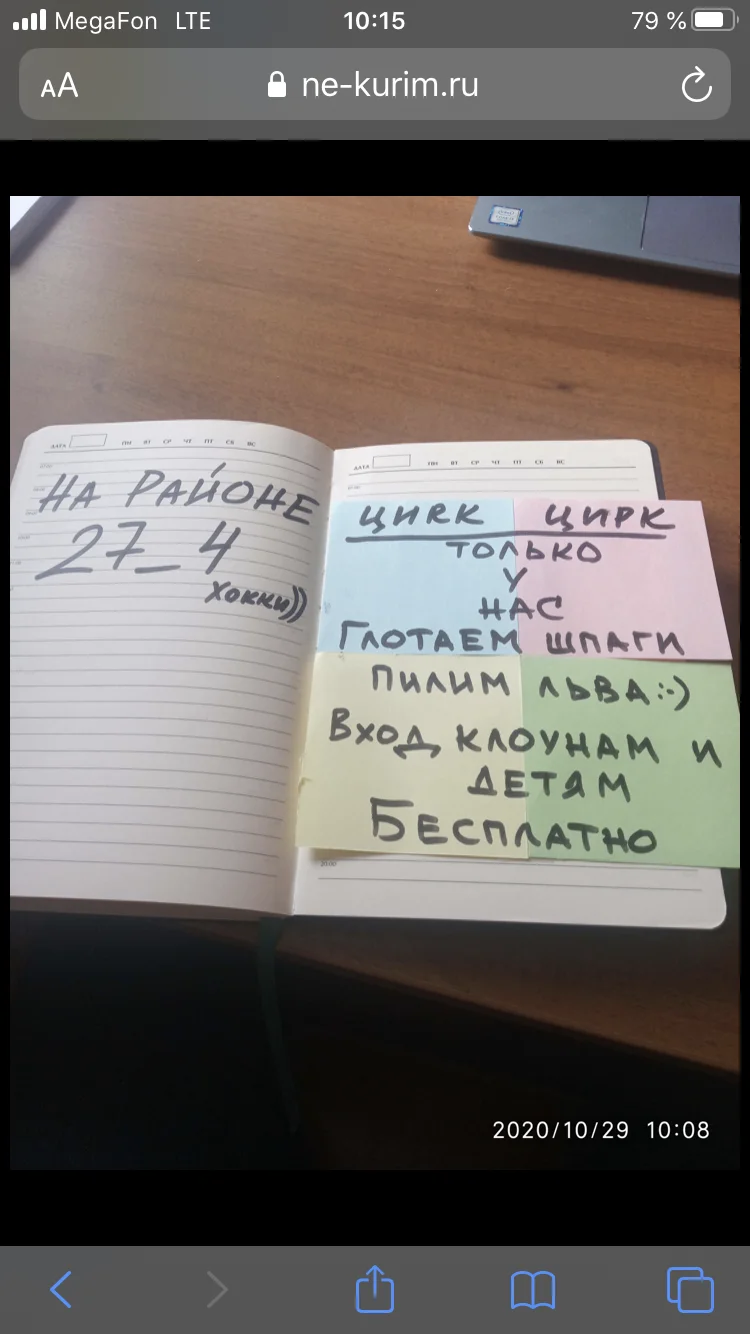 MegaFon LTE 10:15 79 %
AA ne-kurim.ru
ДАТА ПН ВТ СР ЧТ ПТ СБ ВС
НА РАЙОНЕ
27_4
ХОККИ))
ДАТА ПН ВТ СР ЧТ ПТ СБ ВС
ЦИRК ЦИРК
ТОЛЬКО
У
НАС
ГЛОТАЕМ ШПАГИ
ПИЛИМ ЛЬВА:-)
ВХОД КЛОУНАМ И
ДЕТЯМ
БЕСПЛАТНО
20:00
2020/10/29 10:08